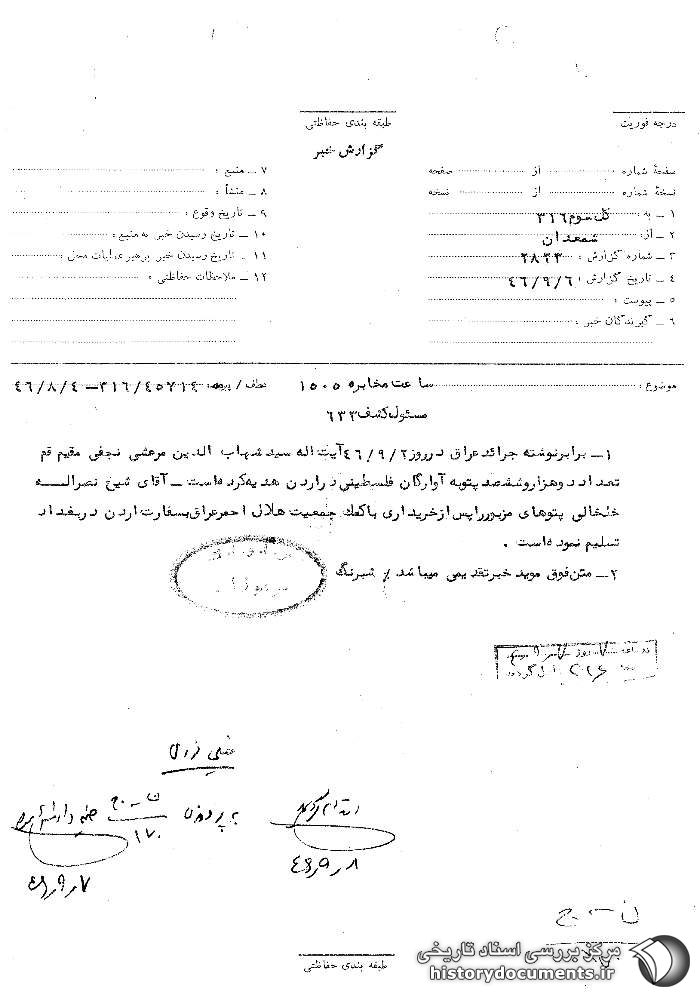 درجه فوریت
طبقه بندی حفاظتی
گزارش خبر
صفحهٔ شماره از صفحه
نسخهٔ شماره از نسخه
۱ ــ به : کل سوم ۳۱۶
۲ ــ از : شمعدان
۳ ــ شماره گزارش : ۲۸۲۳
۴ ــ تاریخ گزارش : ۴۶/۹/۶
۵ ــ پیوست :
۶ ــ گیرندگان خبر :
۷ ــ منبع :
۸ ــ منشأ :
۹ ــ تاریخ وقوع :
۱۰ ــ تاریخ رسیدن خبر به منبع :
۱۱ ــ تاریخ رسیدن خبر برهبر عملیات محل :
۱۲ ــ ملاحظات حفاظتی :
موضوع : ساعت مخابره ۱۵۰۵ عطف / پیرو ۳۱۶/۴۵۷۱۴ ــ ۴۶/۸/۴
مسئول کشف ۶۳۳
۱ــ برابر نوشته جرائد عراق در روز ۴۶/۹/۲ آیت اله سید شهاب الدین مرعشی نجفی مقیم قم
تعداد دو هزار و ششصد پتو به آوارگان فلسطینی در اردن هدیه کرده است ــ آقای شیخ نصراله
خلخالی پتوهای مزبور را پس از خریداری با کمک جمعیت هلال احمر عراق بسفارت اردن در بغداد
تسلیم نموده است .
۲ــ متن فوق موید خبر تقدیمی میباشد / شبرنگ
۴۶/۹/۸
۴۶/۹/۷
طبقه بندی حفاظتی
مرکز بررسی اسناد تاریخی
historydocuments.ir